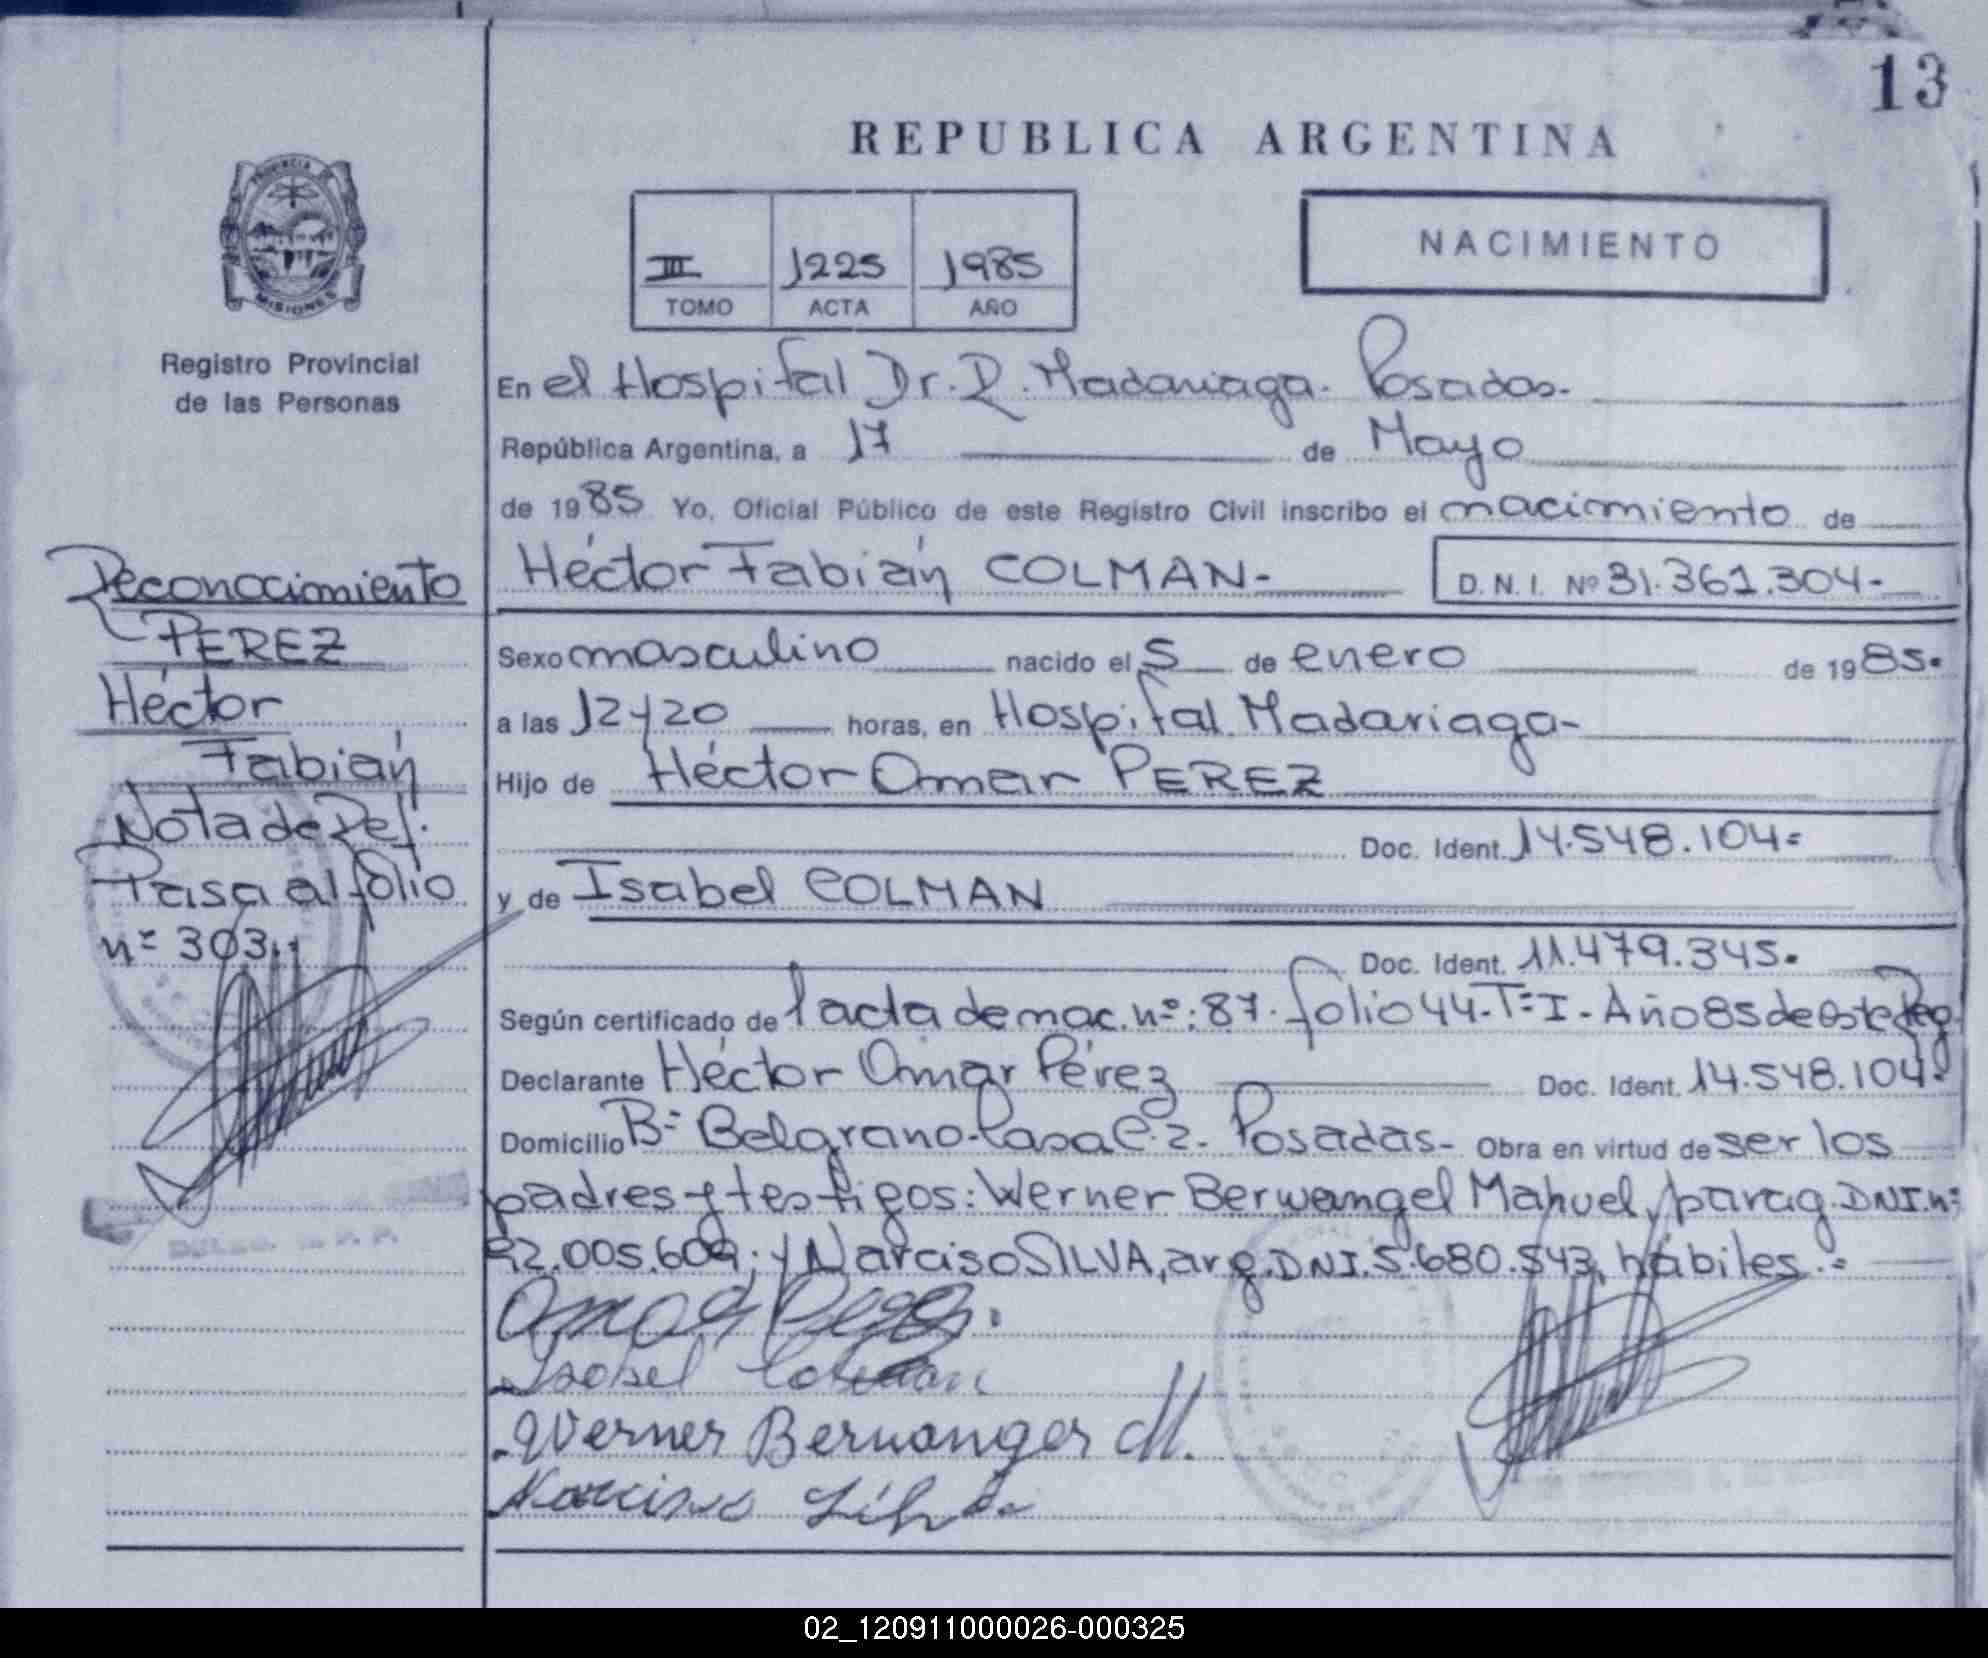 13
REPUBLICA ARGENTINA
PROVINCIA DE
MISIONES
Registro Provincial
de las Personas
III 1225 1985
TOMO ACTA AÑO
NACIMIENTO
En el Hospital Dr. R. Madariaga. Posadas.
República Argentina, a 17 de Mayo
de 1985 Yo, Oficial Público de este Registro Civil inscribo el nacimiento de
Héctor Fabián COLMAN-
D. N. I. Nº 31.361.304-
Sexo masculino nacido el 5 de enero de 1985.
a las 12y20 horas, en Hospital Madariaga-
Hijo de Héctor Omar PEREZ
Doc. Ident. 14.548.104=
y de Isabel COLMAN
Doc. Ident. 11.479.345.
Según certificado de l'acta de nac. nº: 87. folio 44-Tº I - Año 85 de este Reg
Declarante Héctor Omar Pérez Doc. Ident. 14.548.104.
Domicilio Bº Belgrano-Casa C.2- Posadas- Obra en virtud de ser los
padres y testigos: Werner Berwangel Manuel, parag. DNI. nº
92.005.609; y Narciso SILVA, arg. DNI. 5.680.543, hábiles.=
Omar Perez.
Isabel Colman
Werner Berwanger M.
Narciso Silva
Reconocimiento
PEREZ
Héctor
Fabián
Nota de Ref.
Pasa al folio
nº 303.
02_120911000026-000325